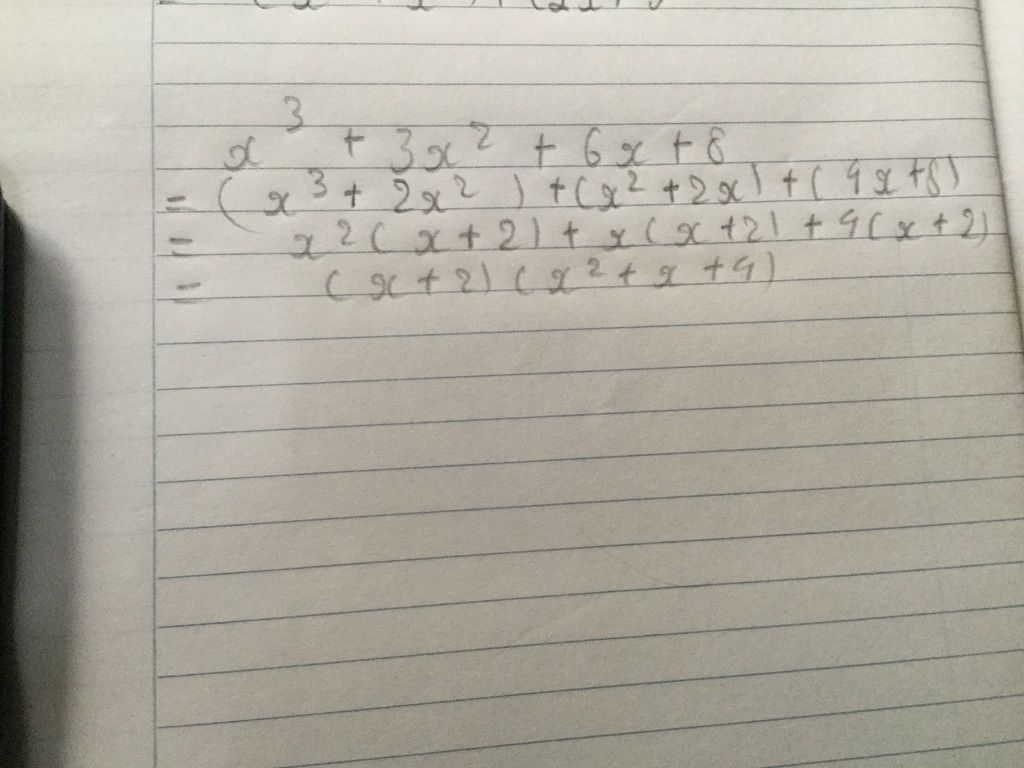 x³ + 3x² + 6x + 8
= (x³ + 2x²) + (x² + 2x) + (4x + 8)
= x²(x + 2) + x(x + 2) + 4(x + 2)
= (x + 2)(x² + x + 4)